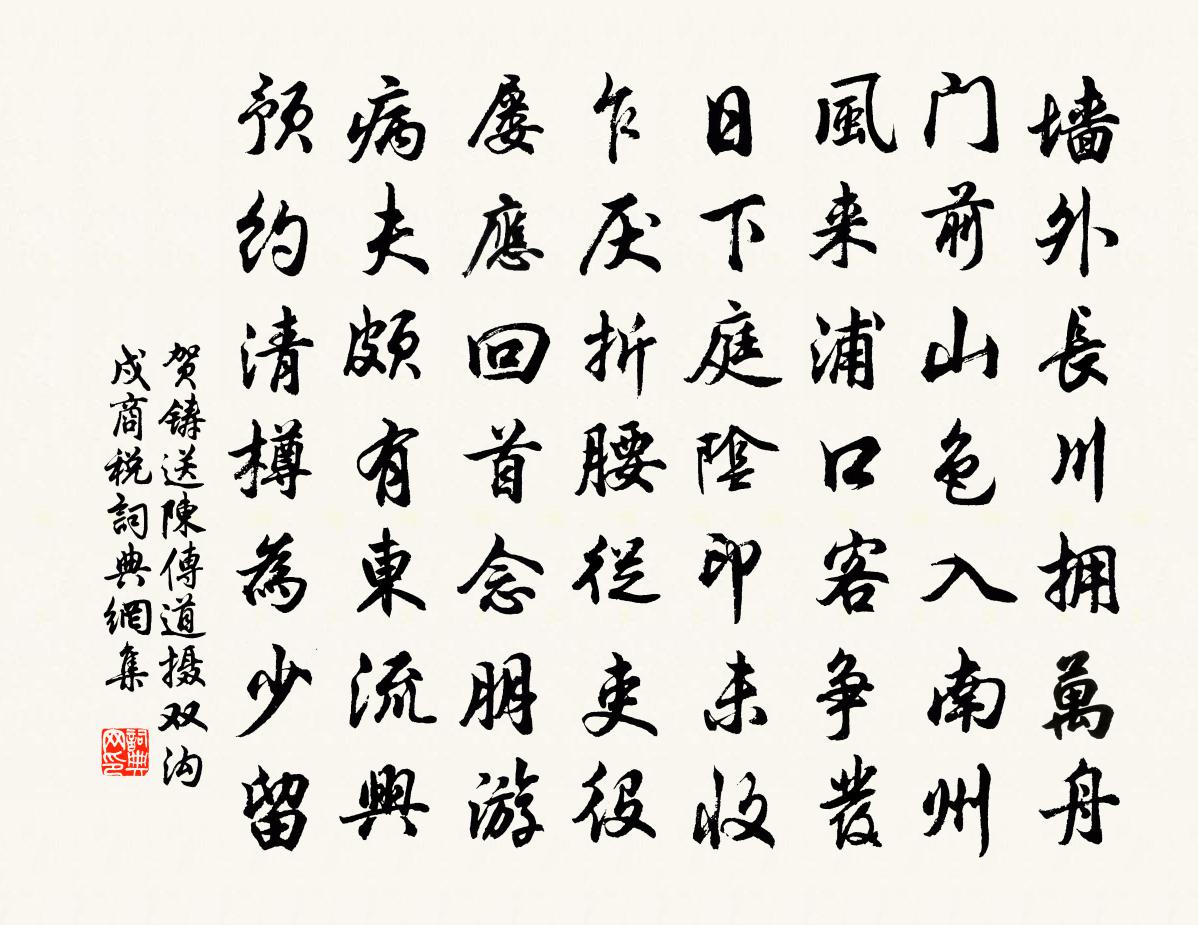 墻外長川拥萬舟
门前山色入南州
風来浦口客争發
日下庭陰印未收
乍厌折腰從吏役
屡應回首念朋游
病夫頗有東流興
预约清樽為少留
贺鑄送陳傳道摄双沟
戍商税詞典網集
詞典网印